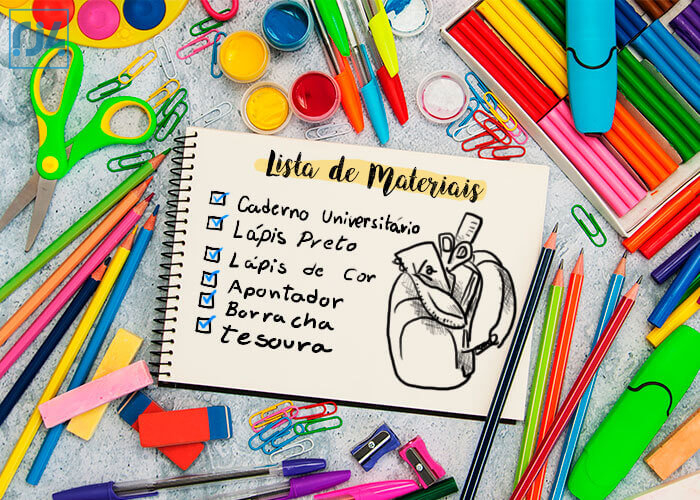 Lista de Materiais
Caderno Universitário
Lápis Preto
Lápis de Cor
Apontador
Borracha
tesoura